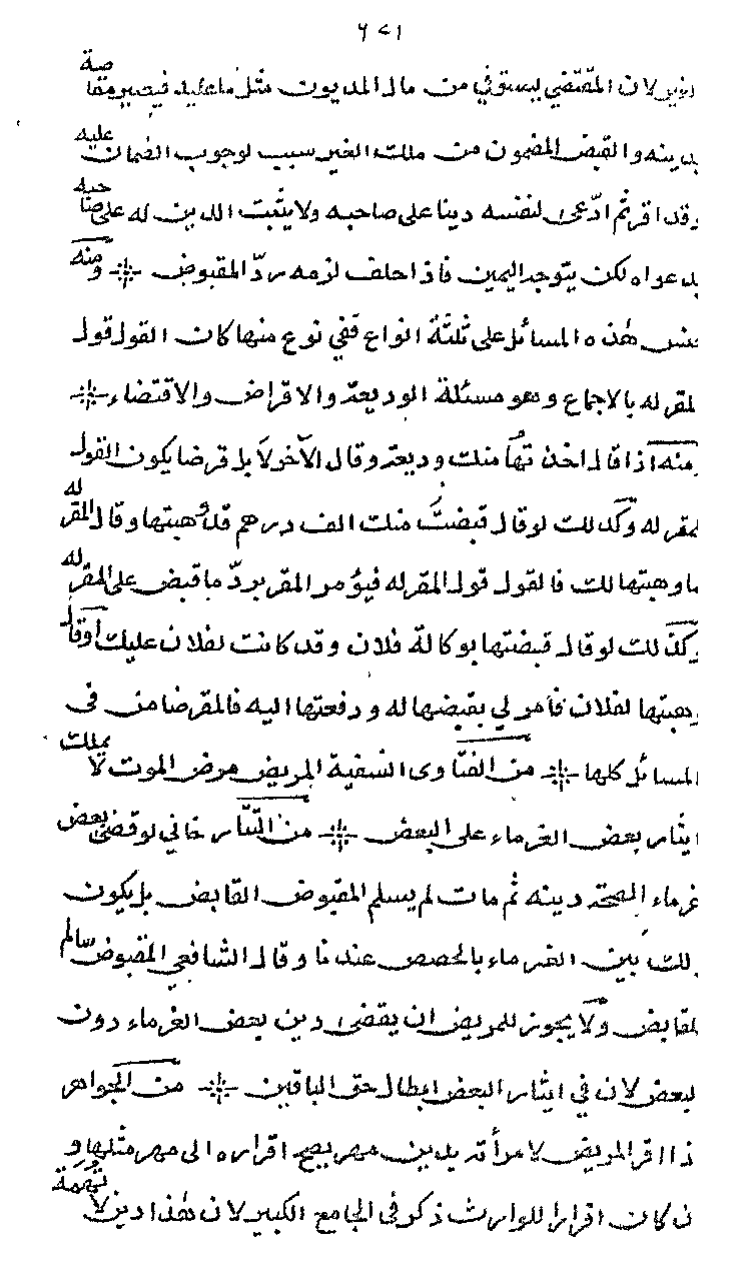 ٦٧١
لان المقتضي ليستوفي من مال المديون مثل ما عليه فيصير مقاصة
بدينه والقبض المضمون من ملك الغير سبب لوجوب الضمان عليه
وقد اقر ثم ادّعى لنفسه دينا على صاحبه ولا يثبت الدين له على صاحبه
بدعواه لكن يتوجه اليمين فاذا حلف لزمه ردّ المقبوض ومنه
جنس هذه المسائل على ثلثة انواع ففي نوع منها كان القول قول
المقر له بالاجماع وهو مسئلة الوديعة والاقراض والاقتضاء
ومنه اذا قال اخذتها منك وديعة وقال الآخر لا بل قرضا يكون القول
للمقر له وكذلك لو قال قبضت منك الف درهم قد وهبتها وقال المقر له
ما وهبتها لك فالقول قول المقر له فيؤمر المقر بردّ ما قبض على المقر له
وكذلك لو قال قبضتها بوكالة فلان وقد كانت لفلان عليك او قال
وهبتها لفلان فأمرلي بقبضها له ودفعتها اليه فالمقر ضامن فى
المسائل كلها من الفتاوى النسفية المريض مرض الموت لا يملك
ايثار بعض الغرماء على البعض من التتار خاني لو قضى بعض
غرماء الصحة دينه ثم مات لم يسلم المقبوض القابض بل يكون
ذلك بين الغرماء بالحصص عندنا وقال الشافعي المقبوض سالم
للقابض ولا يجوز للمريض ان يقضى دين بعض الغرماء دون
البعض لان في ايثار البعض ابطال حق الباقين من الجواهر
اذا اقر المريض لامرأته بدين مهر يصح اقراره الى مهر مثلها و
ان كان اقرارا للوارث ذكر فى الجامع الكبير لان هذا دين لا تهمة